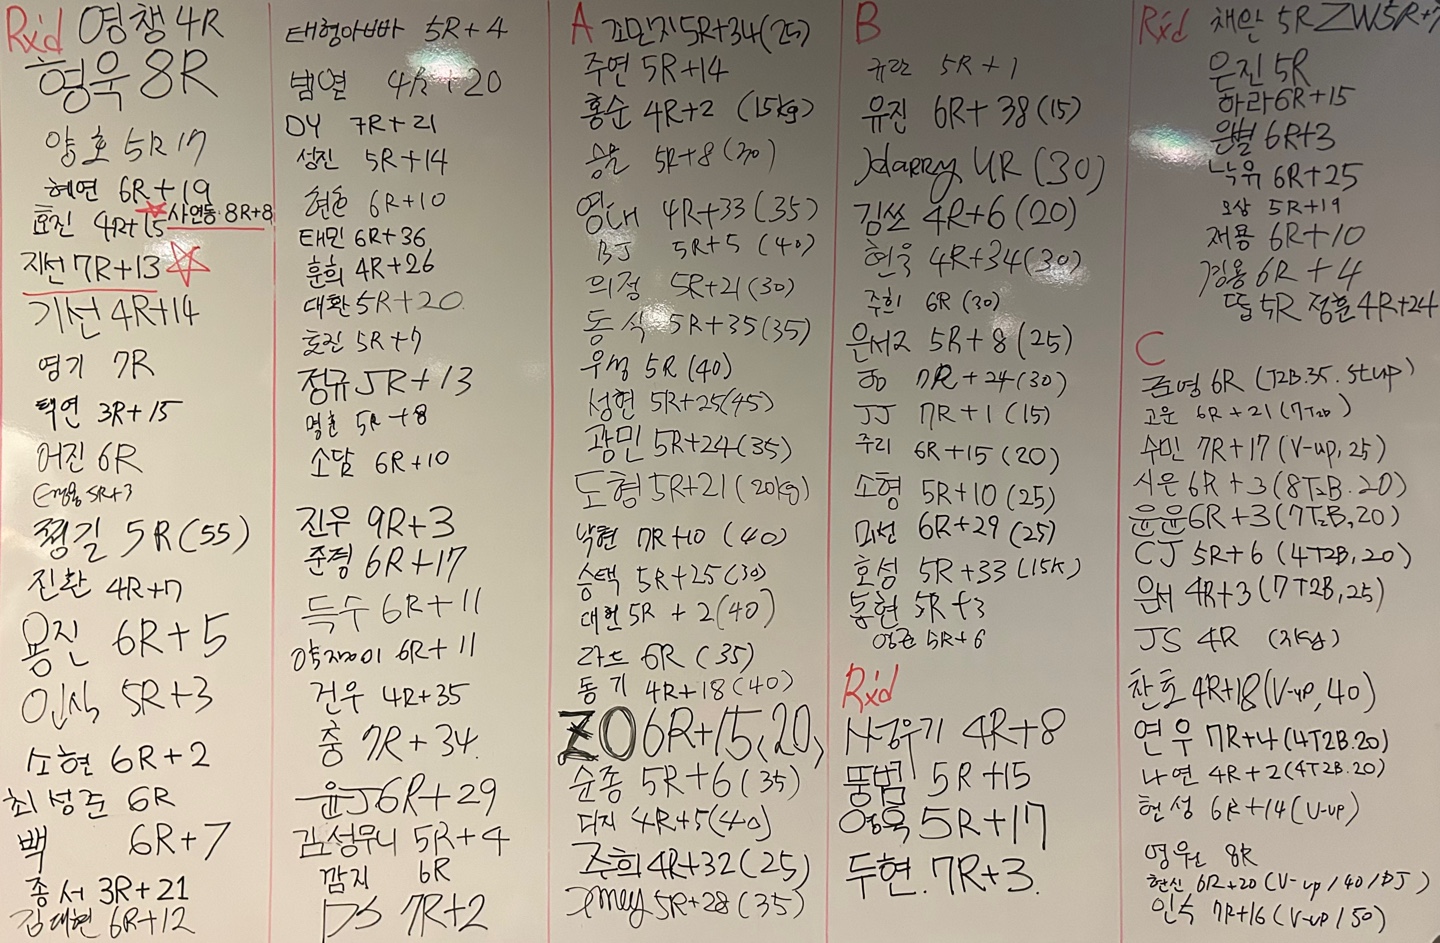 Rx'd 영챙 4R
형욱 8R
양호 5R 17
혜연 6R+19
효진 4R+15 사연동 8R+8
지선 7R+13
기선 4R+14
영기 7R
택연 3R+15
어진 6R
5R+3
쩡길 5R (55)
진환 4R+7
용진 6R+5
인식 5R+3
소현 6R+2
최성준 6R
백 6R+7
종서 3R+21
김대현 6R+12
태형아빠 5R+4
범열 4R+20
DY 7R+21
성진 5R+14
현승 6R+10
태민 6R+36
훈희 4R+26
대환 5R+20
효진 5R+7
정규 5R+13
명훈 5R+8
소담 6R+10
진우 9R+3
준형 6R+17
득수 6R+11
6R+11
건우 4R+35
중 7R+34
윤J 6R+29
김성무니 5R+4
깜지 6R
DS 7R+2
A 꼬민지 5R+34(25)
주연 5R+14
홍순 4R+2 (15kg)
승윤 5R+8 (30)
영대 4R+33 (35)
BJ 5R+5 (40)
의정 5R+21 (30)
동식 5R+35 (35)
우성 5R (40)
성현 5R+25(45)
광민 5R+24(35)
도형 5R+21 (20kg)
낙현 7R+10 (40)
승택 5R+25(30)
대현 5R+2(40)
라드 6R (35)
동기 4R+18(40)
ZO 6R+15,20,
순종 5R+6 (35)
디지 4R+5(40)
주희 4R+32 (25)
Amey 5R+28 (35)
B
규란 5R+1
유진 6R+38(15)
Harry 4R (30)
김쓰 4R+6 (20)
현욱 4R+34(30)
주희 6R (30)
은서2 5R+8 (25)
7R+24(30)
JJ 7R+1 (15)
주리 6R+15 (20)
소형 5R+10 (25)
미선 6R+29 (25)
호성 5R+33 (15K)
통현 5R+3
영준 5R+6
Rx'd
사공우기 4R+8
뚱범 5R+15
영욱 5R+17
두현 7R+3
Rx'd 채완 5R ZW5R+7
은진 5R
하라 6R+15
은별 6R+3
낙유 6R+25
오상 5R+19
저용 6R+10
경용 6R+4
뜹 5R 정훈 4R+24
C
준영 6R (T2B.35.stup)
고운 6R+21 (7T2b)
수민 7R+17 (V-up, 25)
시은 6R+3 (8T2B.20)
윤윤 6R+3 (7T2B,20)
CJ 5R+6 (4T2B,20)
은서 4R+3 (7T2B,25)
JS 4R
찬호 4R+18(V-up,40)
연우 7R+4 (4T2B.20)
나연 4R+2 (4T2B.20)
현성 6R+14 (V-up)
영원 8R
현신 6R+20 (V-up/40/BJ)
인숙 7R+16 (V-up/50)